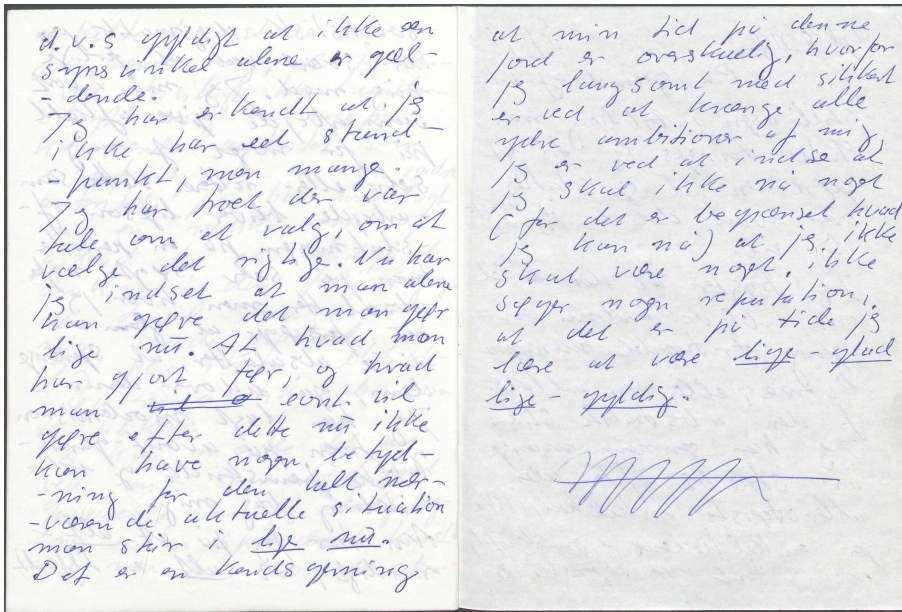 d.v.s gyldigt at ikke én
synsvinkel alene er gæl-
-dende.
Jeg har erkendt at jeg
ikke har eet stand-
-punkt, men mange.
Jeg har troet der var
tale om et valg, om at
vælge det rigtige. Nu har
jeg indset at man alene
kan gøre det man gør
lige nu. At hvad man
har gjort før, og hvad
man evnt. vil
gøre efter dette nu ikke
kan have nogen betyd-
-ning for den helt nær-
-værende aktuelle situation
man står i lige nu.
Det er en kendsgerning
at min tid på denne
jord er overskuelig, hvorfor
jeg langsomt med sikkert
er ved at krænge alle
ydre ambitioner af mig,
jeg er ved at indse at
jeg skal ikke nå noget
(for det er begrænset hvad
jeg kan nå) at jeg ikke
skal være noget, ikke
søger nogen reputation,
at det er på tide jeg
lære at være lige-glad
lige-gyldig.